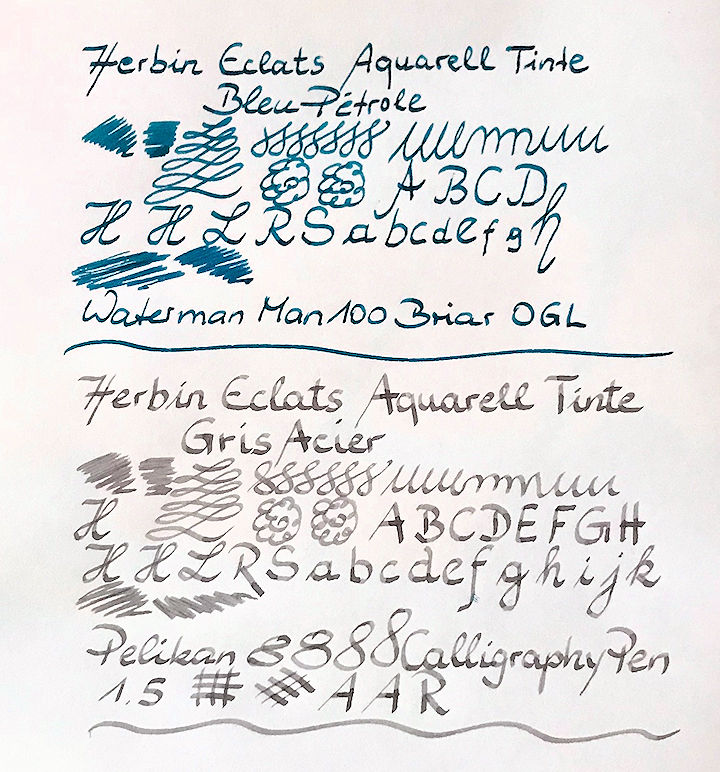 Herbin Eclats Aquarell Tinte
Bleu-Pétrole
A B C D
H H L R S a b c d e f g h
Waterman Man 100 Briar OGL
Herbin Eclats Aquarell Tinte
Gris Acier
H A B C D E F G H
H H L R S a b c d e f g h i j k
Pelikan 8 8 8 8 Calligraphy Pen
1.5 # # A A R